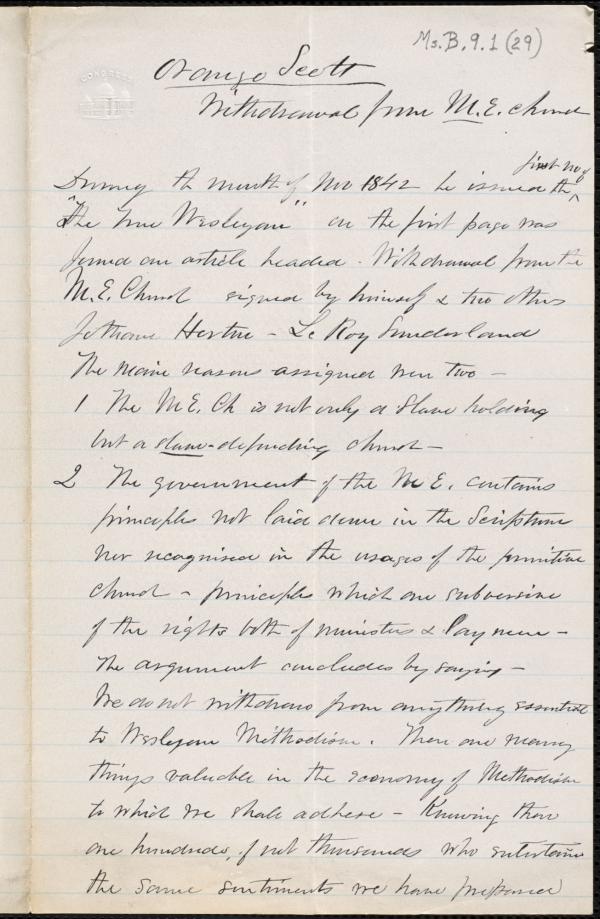 Ms. B. 9. 1 (29)
CONGRESS
Orange Scott
Withdrawal from M.E. Church
During the month of Nov 1842 he issued the ^ first no of
"The True Wesleyan" on the first page was
found an article headed - Withdrawal from the
M.E. Church signed by himself & two others
Jotham Horton - Le Roy Sunderland
The main reasons assigned were two -
1 The M.E. Ch is not only a Slave holding
but a slave-defending church -
2 The government of the M E. contains
principles not laid down in the Scripture
nor recognised in the usages of the primitive
church - principles which are subversive
of the rights both of ministers & laymen -
The argument concludes by saying -
We do not withdraw from anything essential
to Wesleyan Methodism. There are many
things valuable in the economy of Methodism
to which we shall adhere - Knowing there
are hundreds, if not thousands who entertain
the same sentiments we have prepared